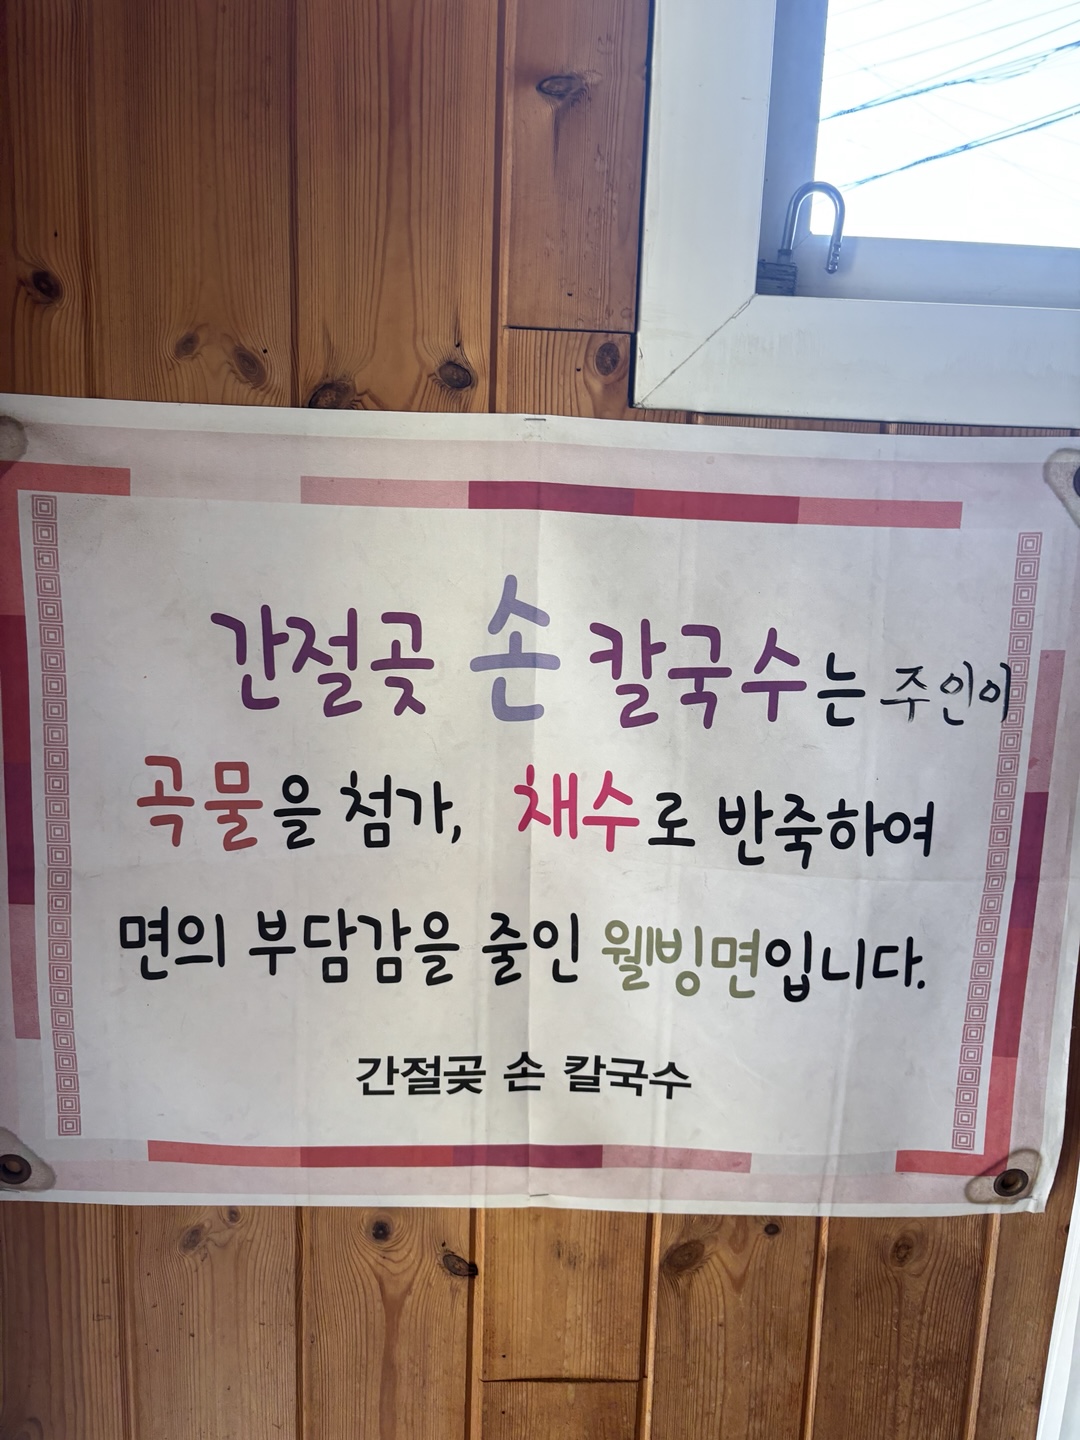 간절곶 손 칼국수는 주인이
곡물을 첨가, 채수로 반죽하여
면의 부담감을 줄인 웰빙면입니다.
간절곶 손 칼국수